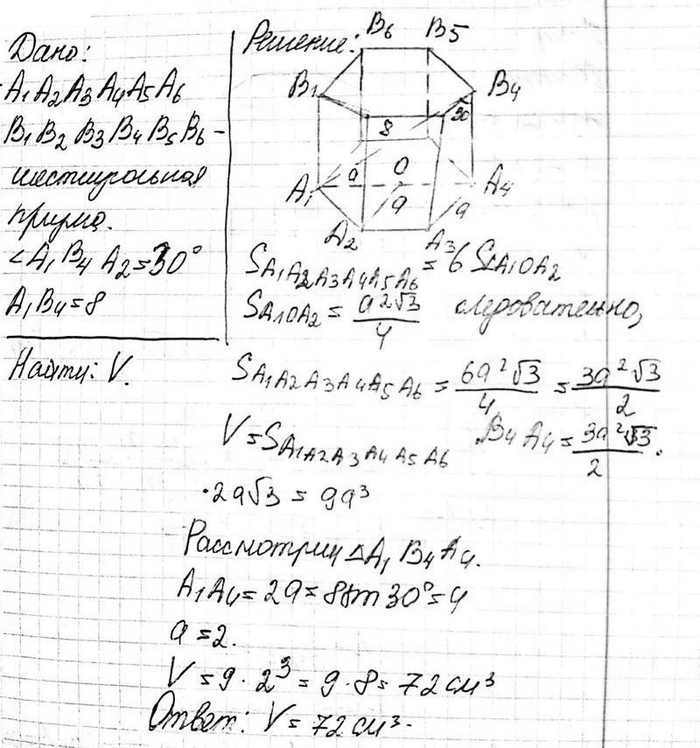 Дано:
A₁A₂A₃A₄A₅A₆
B₁B₂B₃B₄B₅B₆ –
шестиугольная
призма.
∠A₁B₄A₂=30°
A₁B₄=8
Найти: V.
Решение:
B₆ B5
B₁ B₄
8 30
a O
A₁ a a A₄
A₂ A₃
S A₁A₂A₃A₄A₅A₆ = 6 S A₁OA₂
S A₁OA₂ = a²√3/4 следовательно,
S A₁A₂A₃A₄A₅A₆ = 6a²√3/4 = 3a²√3/2
V = S A₁A₂A₃A₄A₅A₆ · B₄A₄ = 3a²√3/2 ·
· 2a√3 = 9a³
Рассмотрим △A₁B₄A₄.
A₁A₄ = 2a = 8sin30° = 4
a = 2.
V = 9 · 2³ = 9 · 8 = 72 см³
Ответ: V = 72 см³.